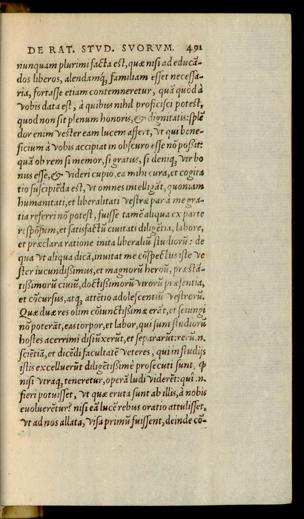 DE RAT. STVD. SVORVM. 491
nunquam plurimi facta est, quæ nisi ad educã-
dos liberos, alendamq́; familiam esset necessa-
ria, fortasse etiam contemneretur, quã quòd à
vobis data est, à quibus nihil proficisci potest,
quod non sit plenum honoris, & dignitatis: splẽ
dor enim vester eam lucem affert, vt qui bene-
ficium à vobis accipiat in obscuro esse nõ possit:
quã ob rem si memor, si gratus, si deniq; vir bo
nus esse, & videri cupio, ea mihi cura, et cogita
tio suscipiẽda est, vt omnes intelligãt, quoniam
humanitati, et liberalitati vestræ par à me gra-
tia referri nõ potest, fuisse tamẽ aliqua ex parte
respõsum, et satisfactũ ciuitati diligẽtia, labore,
et præclara ratione imitã liberaliũ studiorũ: de
qua vt aliqua dicã, inuitat me cõspectus iste ve
ster iucundissimus, et magnorũ heroũ, præstã-
tissimorũ ciuiũ, doctissimorũ virorũ præsentia,
et cõcursus, atq; attẽtio adolescentiũ vestrorũ.
Quæ duæ res olim cõiunctissimæ erãt, et seiungi
nõ poterãt, eas torpor, et labor, qui sunt studiorũ
hostes acerrimi disiũxerũt, et separarũt: rerũ .n.
sciẽtiã, et dicẽdi facultatẽ veteres, qui in studijs
istis excelluerũt diligẽtissimè prosecuti sunt,
nisi vtraq; teneretur, operã ludi viderẽt: quî .n.
fieri potuisset, vt quæ eruta sunt ab illis, à nobis
euoluerẽtur? nisi eã lucẽ rebus oratio attulisset,
vt ad nos allata, visa primũ fuissent, deinde cõ-